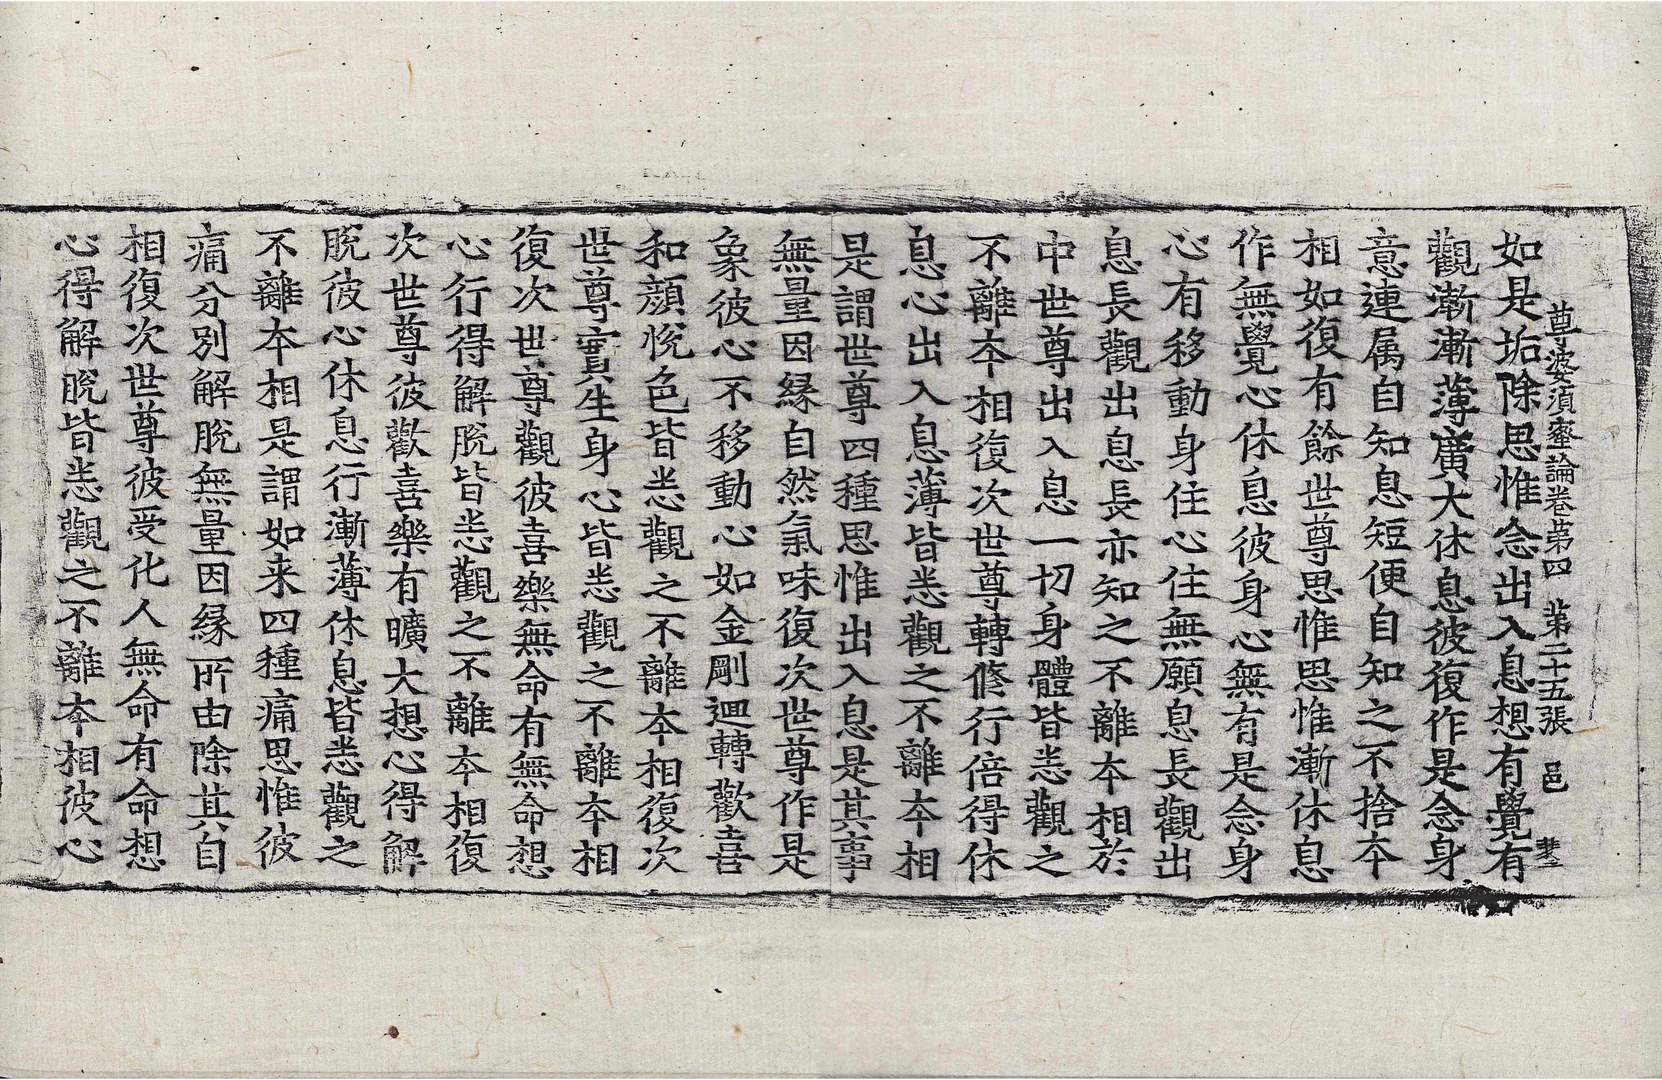 尊婆須蜜論卷苐四 苐二十五張 邑
如是垢除思惟念出入息想有覺有
觀漸漸薄廣大休息彼復作是念身
意連属自知息短便自知之不捨夲
相如復有餘世尊思惟思惟漸休息
作無覺心休息彼身心無有是念身
心有移動身住心住無願息長觀出
息長觀出息長亦知之不離夲相於
中世尊出入息一切身體皆悉觀之
不離夲相復次世尊轉修行倍得休
息心出入息薄皆悉觀之不離夲相
是謂世尊四種思惟出入息是其事
無量因緣自然氣味復次世尊作是
象彼心不移動心如金剛迴轉歡喜
和顔悅色皆悉觀之不離夲相復次
世尊實生身心皆悉觀之不離夲相
復次世尊觀彼喜樂無命有無命想
心行得解脫皆悉觀之不離夲相復
次世尊彼歡喜樂有曠大想心得解
脫彼心休息行漸薄休息皆悉觀之
不離夲相是謂如来四種痛思惟彼
痛分別解脫無量因緣所由除其自
相復次世尊彼受化人無命有命想
心得解脫皆悉觀之不離夲相彼心